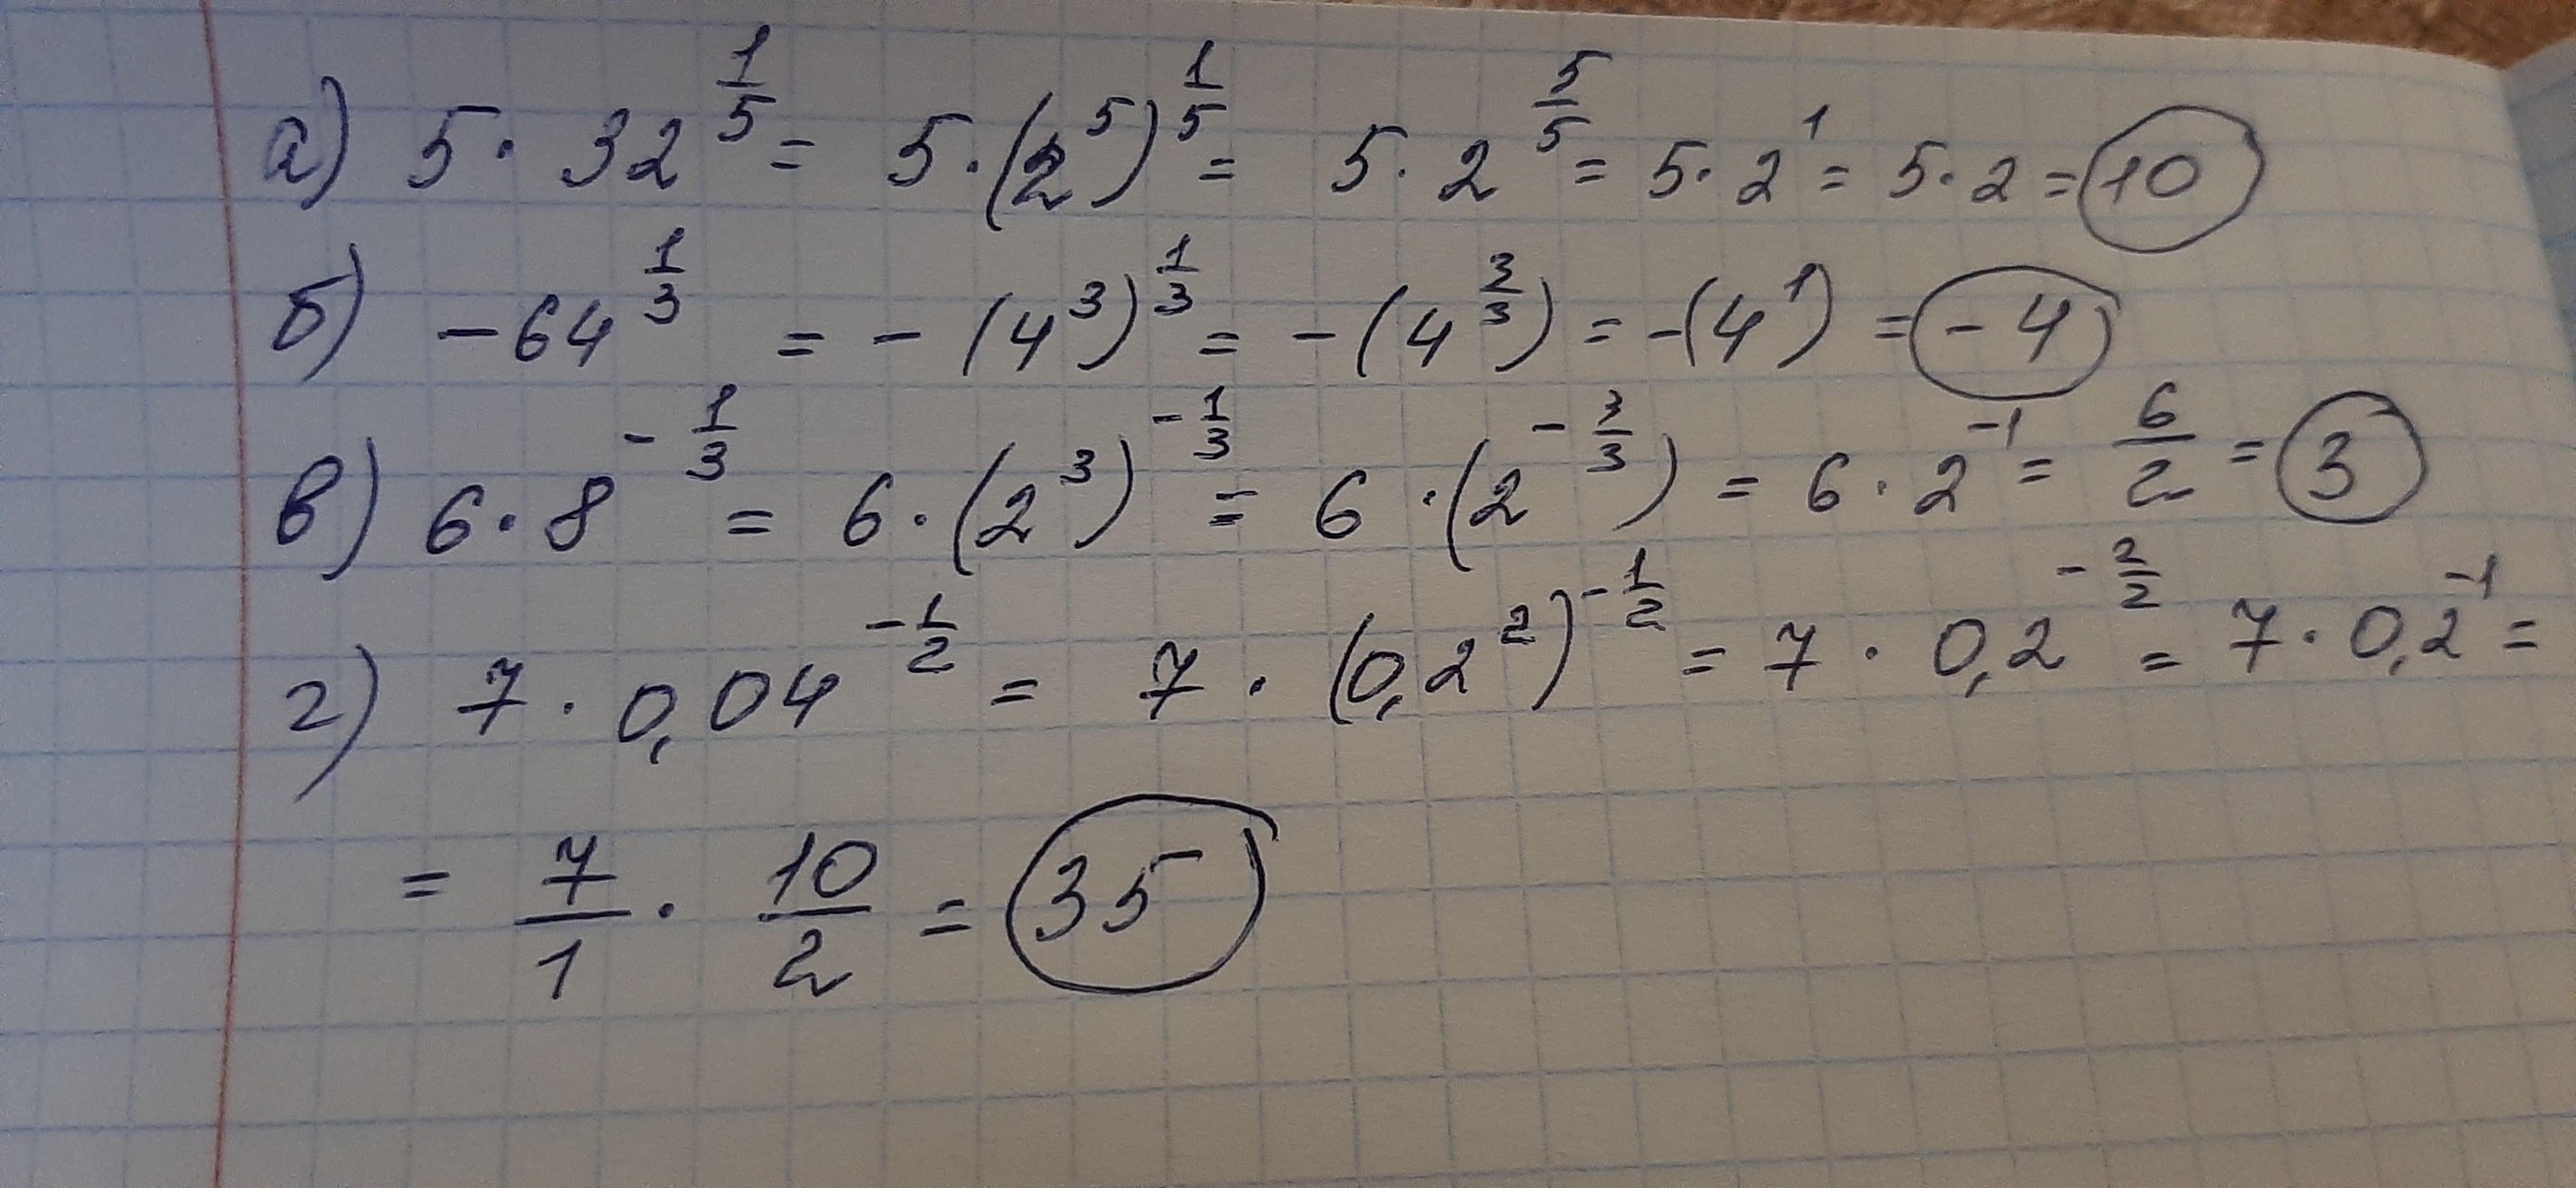 а) 5 · 32^(1/5) = 5 · (2^5)^(1/5) = 5 · 2^(5/5) = 5 · 2^1 = 5 · 2 = 10
б) -64^(1/3) = -(4^3)^(1/3) = -(4^(3/3)) = -(4^1) = -4
в) 6 · 8^(-1/3) = 6 · (2^3)^(-1/3) = 6 · (2^(-3/3)) = 6 · 2^(-1) = 6/2 = 3
г) 7 · 0,04^(-1/2) = 7 · (0,2^2)^(-1/2) = 7 · 0,2^(-2/2) = 7 · 0,2^(-1) =
= 7/1 · 10/2 = 35